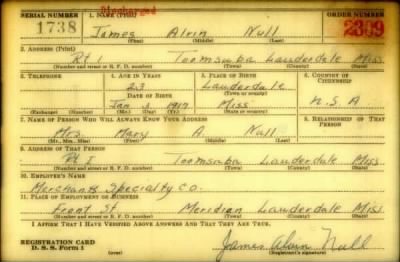 Discharged
SERIAL NUMBER 1. NAME (Print) ORDER NUMBER
1738 James Alvin Null 2309
(First) (Middle) (Last)
2. ADDRESS (Print)
Rt 1 Toomsuba Lauderdale Miss
(Number and street or R. F. D. number) (Town) (County) (State)
3. TELEPHONE 4. AGE IN YEARS 5. PLACE OF BIRTH 6. COUNTRY OF CITIZENSHIP
23 Lauderdale
DATE OF BIRTH (Town or county)
Jan 3 1917 Miss U.S.A
(Exchange) (Number) (Mo.) (Day) (Yr.) (State or country)
7. NAME OF PERSON WHO WILL ALWAYS KNOW YOUR ADDRESS 8. RELATIONSHIP OF THAT PERSON
Mrs. Mary A. Null
(Mr., Mrs., Miss) (First) (Middle) (Last)
9. ADDRESS OF THAT PERSON
Rt 1 Toomsuba Lauderdale Miss
(Number and street or R. F. D. number) (Town) (County) (State)
10. EMPLOYER'S NAME
Merchants Specialty Co.
11. PLACE OF EMPLOYMENT OR BUSINESS
Front St. Meridian Lauderdale Miss
(Number and street or R. F. D. number) (Town) (County) (State)
I AFFIRM THAT I HAVE VERIFIED ABOVE ANSWERS AND THAT THEY ARE TRUE.
REGISTRATION CARD
D. S. S. Form 1 James Alvin Null
(Registrant's signature)